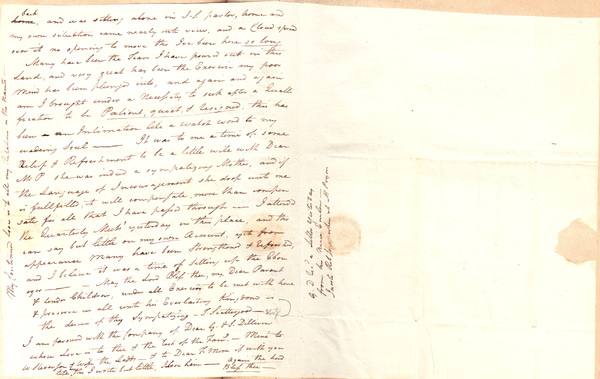 back
home, and was sitting alone in J. S. parlor, home and
my own situation came nearly into view, and a Cloud spread
over it no opening to move tho I've been here so long
Many have been the Tears I have poured out in this
Land, and very great has been the Exercise my poor
Mind has been plunged into, and again and again
am I brought under a Necessity to seek after a Quali
fication to be Patient, quiet & Resigned, this has
been an Intimation like a watch word to my
wadering Soul — It was to me a time of some
Relief & Refreshment to be a little while with Dear
M P she was indeed a sympathizing Mother, and if
the Language of Incouragement she drop'd unto me
is fullfilled, it will compensate, more than compen
sate for all that I have passed through — I attend
the Quarterly Meet'g yesterday in this place, and tho
can say but little on my own Account, yet from
appearance Many have been Strengthened & Refreshed,
and I believe it was a time of setting up the Eben
ezer — May the Lord Bless thee, my Dear Parent
& tender Children, under all Exercises to be met with here
& preserve us all unto his Everlasting Kingdom is
the desire of thy Sympathizing T Scattergood
I am favored with the company of Dear G. & S. Dillwyn
whose Love is to thee & the rest of the Fam'y — Mine to
& to Dear T. if with you
I wrote but little, again the Lord
Bless thee —
My endeared Love is to all my Relations in the
G D rec'd a Letter yesterday
from her